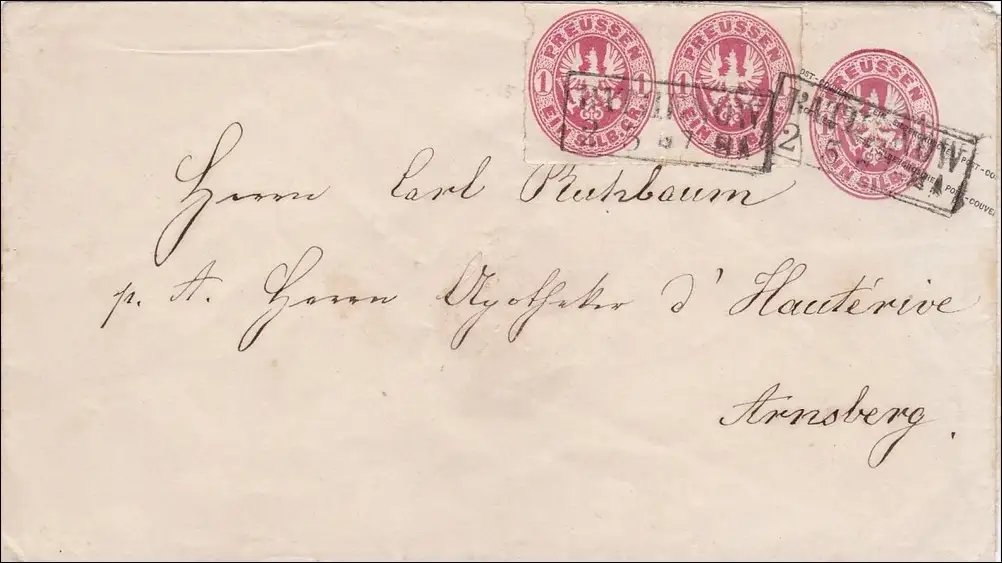 PREUSSEN 1 1 EIN SILB.GR.
PREUSSEN 1 EIN SILB.GR.
PREUSSEN 1 1 EIN SILB.GR.
RATHENOW
2 5 67 8A
RATHENOW
2 5
Herrn Carl Ruhbaum
p. A. Herrn Apotheker d' Hautérive
Arnsberg.